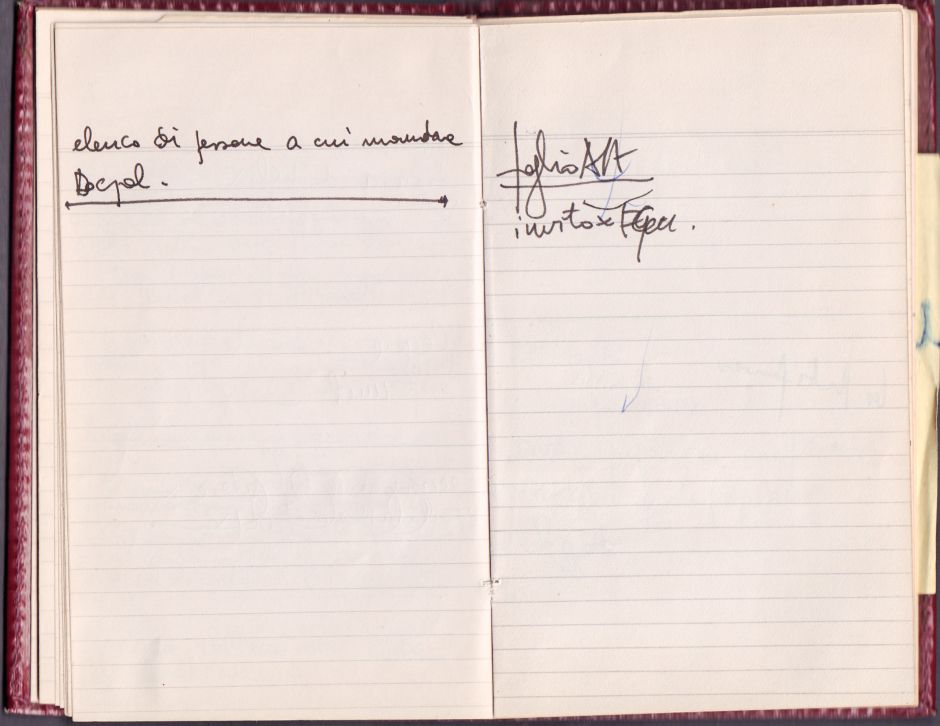 elenco di persone a cui mandare
Docpol.
foglio A4
invito x